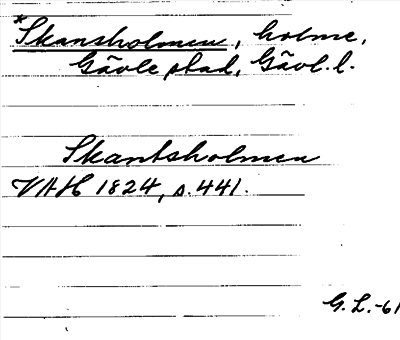 *Skansholmen, holme,
Gävle stad, Gävl. l.
Skantsholmen
VAH 1824, s. 441.
G. L. -61